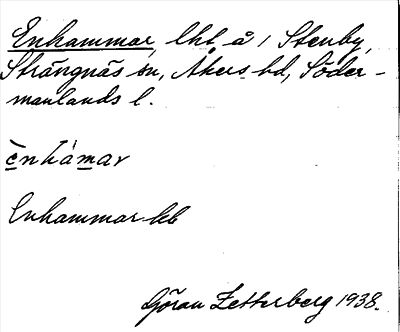 Enhammar, lht å 1 Stenby,
Strängnäs sn, Åkers hd, Söder-
manlands l.
ènhámar
Enhammar kb
Göran Zetterberg 1938.